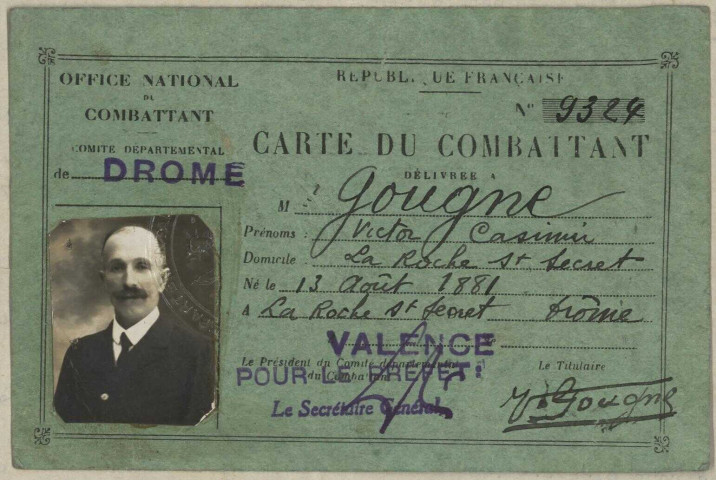 OFFICE NATIONAL
DU
COMBATTANT
COMITÉ DÉPARTEMENTAL
de DROME
RÉPUBLIQUE FRANÇAISE
N° 9324
CARTE DU COMBATTANT
DÉLIVRÉE A
M Gougne
Prénoms : Victor Casimir
Domicile : La Roche St Secret
Né le 13 Août 1881
A La Roche St Secret Drôme
VALENCE
Le Président du Comité départemental
du Combattant
POUR LE PREFET:
Le Secrétaire Général,
Le Titulaire
Gougne